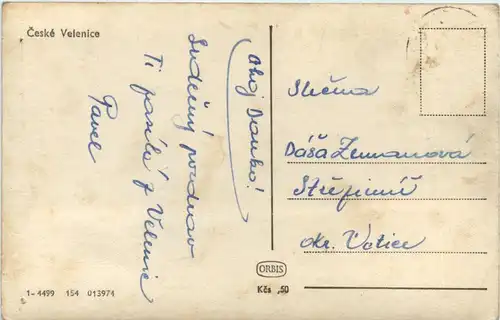 České Velenice
Ahoj Danko!
Srdečný pozdrav
Ti posílá z Velenic
Pavel
Slečna
Dáša Zemanová
Střezimíř
okr. Votice
ORBIS
Kčs ,50
1-4499 154 013974